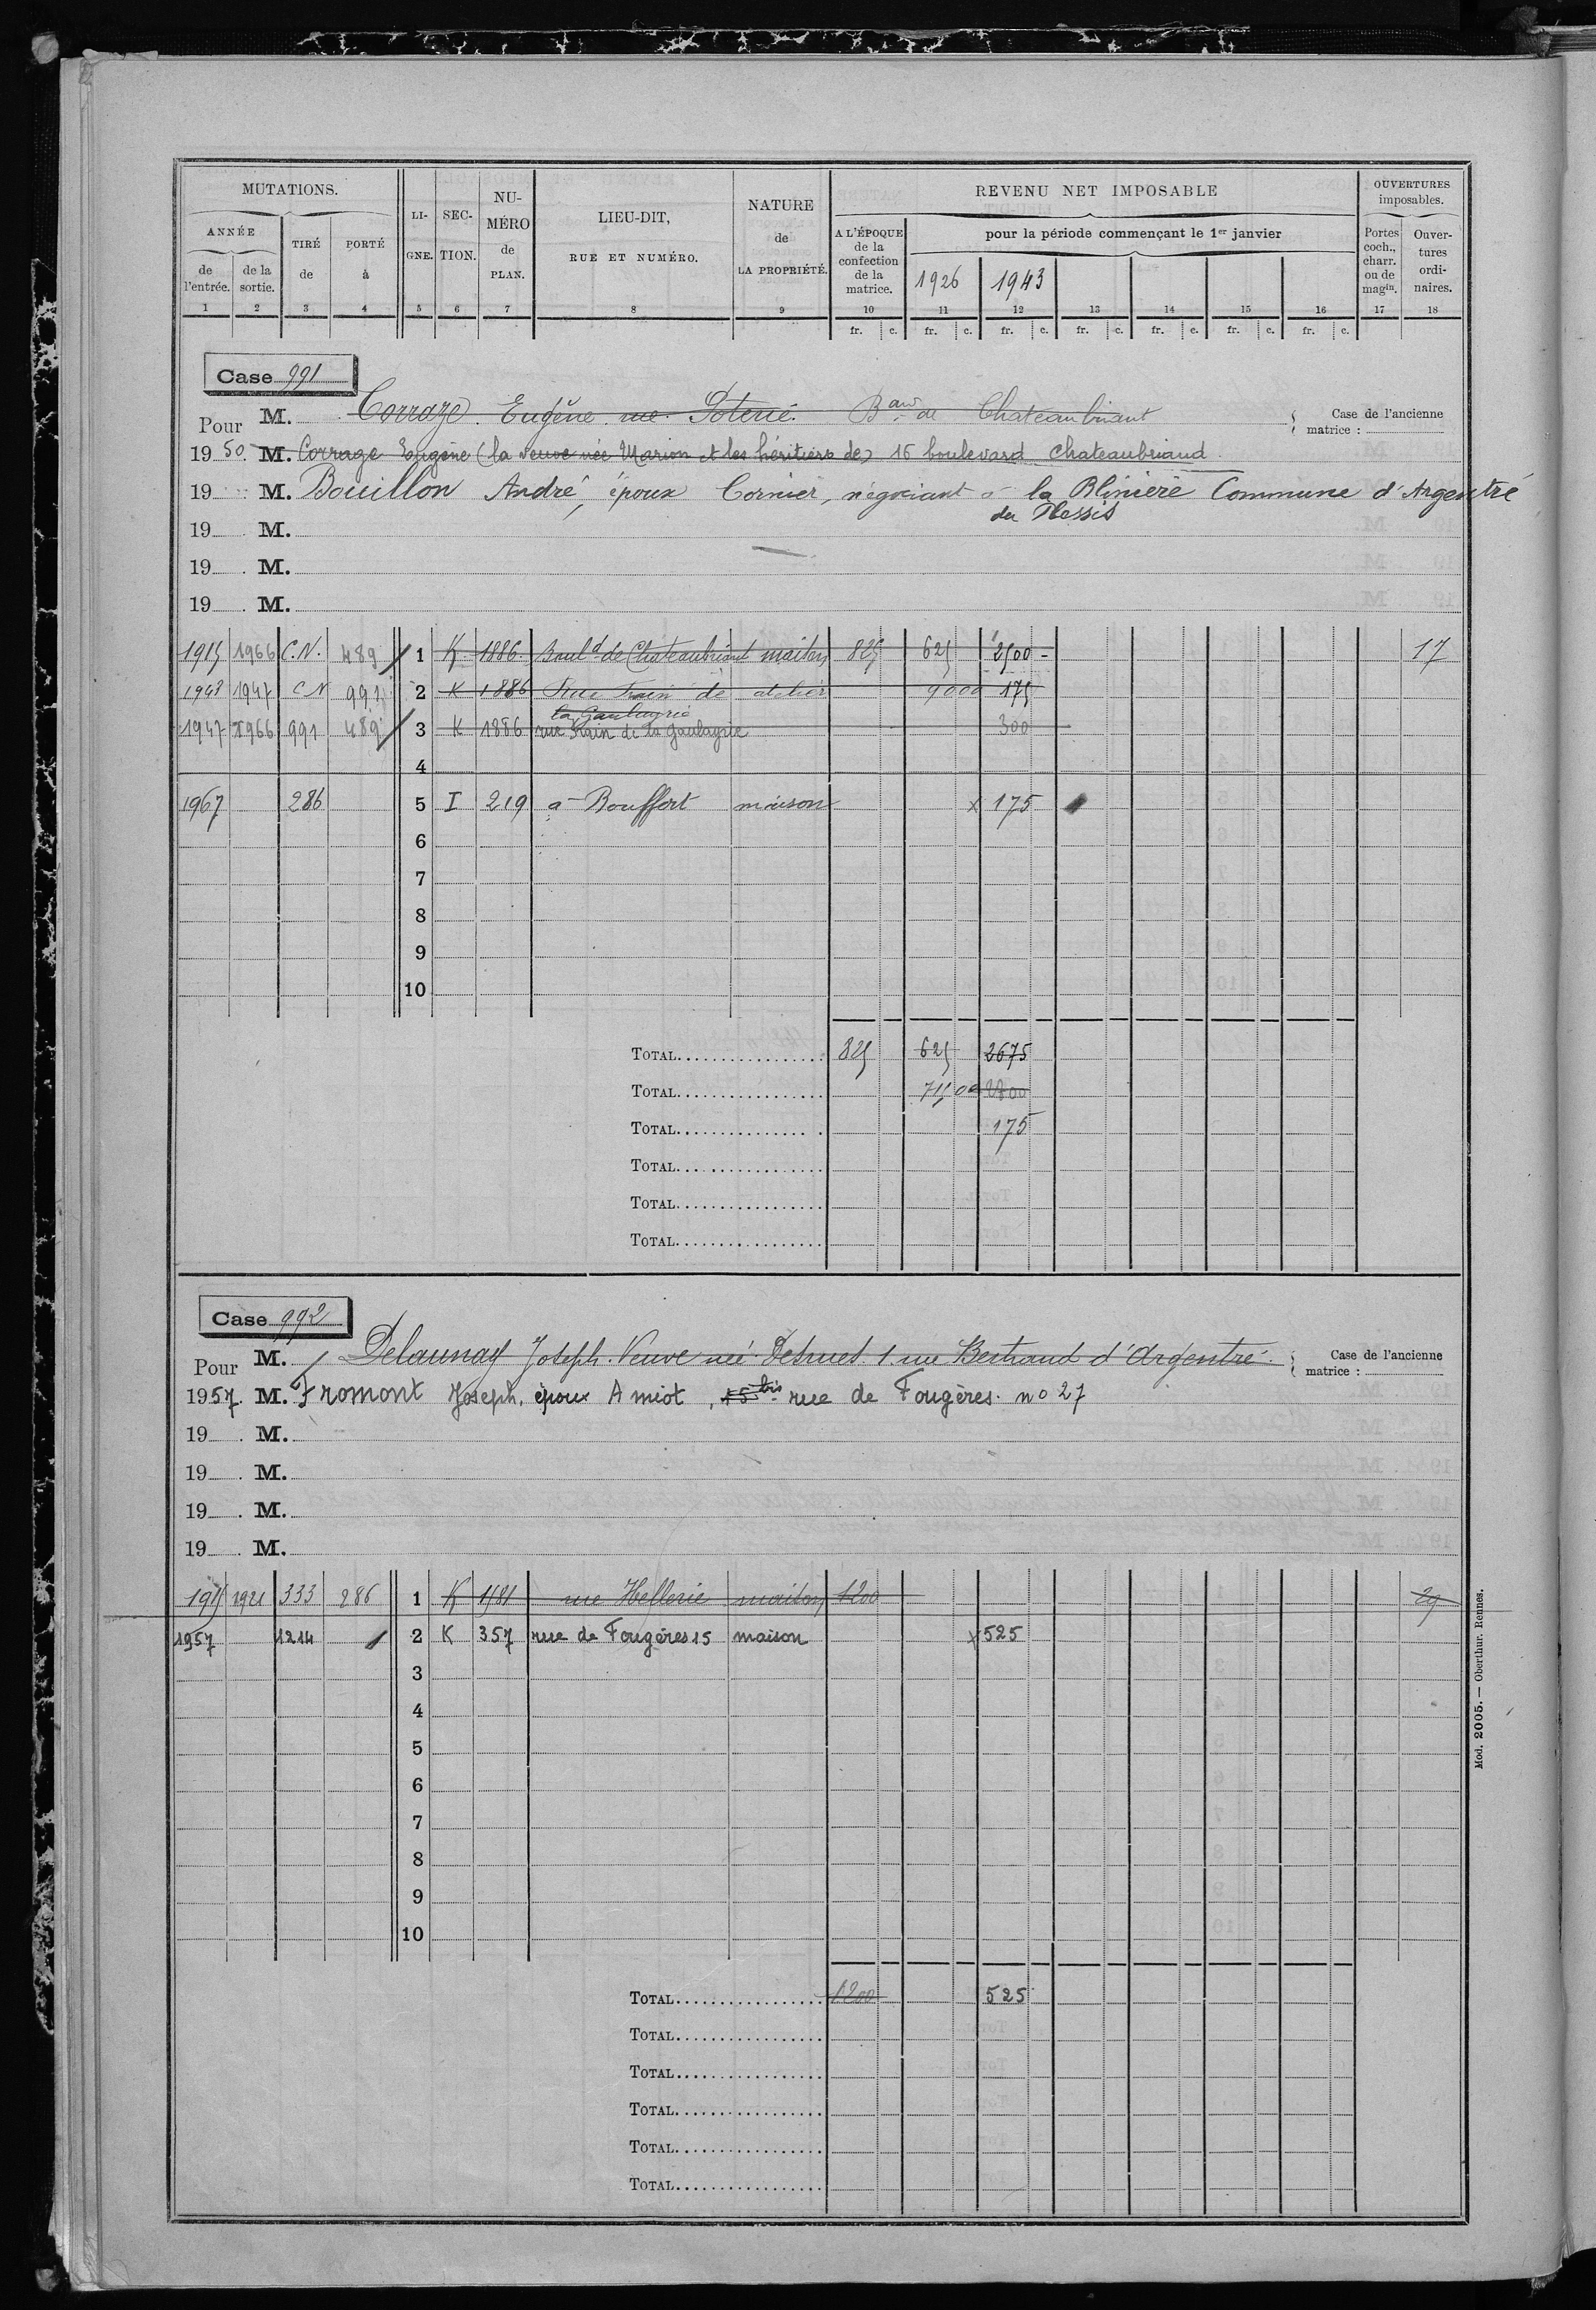 MUTATIONS. LI-GNE. SEC-TION. NU-MÉRO de PLAN. LIEU-DIT, RUE ET NUMÉRO. NATURE de LA PROPRIÉTÉ. REVENU NET IMPOSABLE OUVERTURES imposables.
ANNÉE TIRÉ de PORTÉ à A L'ÉPOQUE de la confection de la matrice. pour la période commençant le 1er janvier Portes coch., charr. ou de magin. Ouver-tures ordi-naires.
de l'entrée. de la sortie. 1926 1943
1 2 3 4 5 6 7 8 9 10 11 12 13 14 15 16 17 18
fr. c. fr. c. fr. c. fr. c. fr. c. fr. c. fr. c.
Case 991
Pour M. Corraze Eugène rue Poterie Bard de Chateaubriant Case de l'ancienne matrice :
1950. M. Corrage Eugène (la veuve née Marion et les héritiers de) 16 boulevard Chateaubriand
19 M. Bouillon André, époux Cornier, négociant à la Blinière Commune d'Argentré
du Plessis
19 . M.
19 . M.
19 . M.
1915 1966 C.N. 489 1 K 1886 Bould de Chateaubriant maison 825 625 2500 - 17
1943 1947 CN 991 2 K 1886 rue Train de la Gaulayrie atelier 9000 175
1947 1966 991 489 3 K 1886 rue Train de la Gaulayrie 300
4
1967 286 5 I 219 à Bouffort maison x 175
6
7
8
9
10
TOTAL 825 625 2675
TOTAL 7500 2800
TOTAL 175
TOTAL
TOTAL
TOTAL
Case 992
Pour M. Delaunay Joseph. Veuve née Desrues 1 rue Bertrand d'Argentré. Case de l'ancienne matrice :
1957. M. Fromont Joseph, époux Amiot, 15 bis rue de Fougères no 27
19 . M.
19 . M.
19 . M.
19 . M.
1915 1921 333 286 1 K 1581 rue Hellerie maison 1200 29
1957 1214 2 K 357 rue de Fougères 15 maison x 525
3
4
5
6
7
8
9
10
TOTAL 1200 525
TOTAL
TOTAL
TOTAL
TOTAL
TOTAL
Mod. 2005. — Oberthur. Rennes.